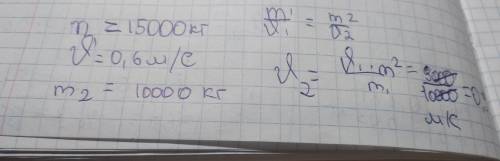 m₁ = 15000 кг
ϑ = 0,6 м/с
m₂ = 10000 кг
m₁/ϑ₁ = m2/ϑ₂
ϑ₂ = ϑ₁·m2/m₁ = /10000 = 0
м/с